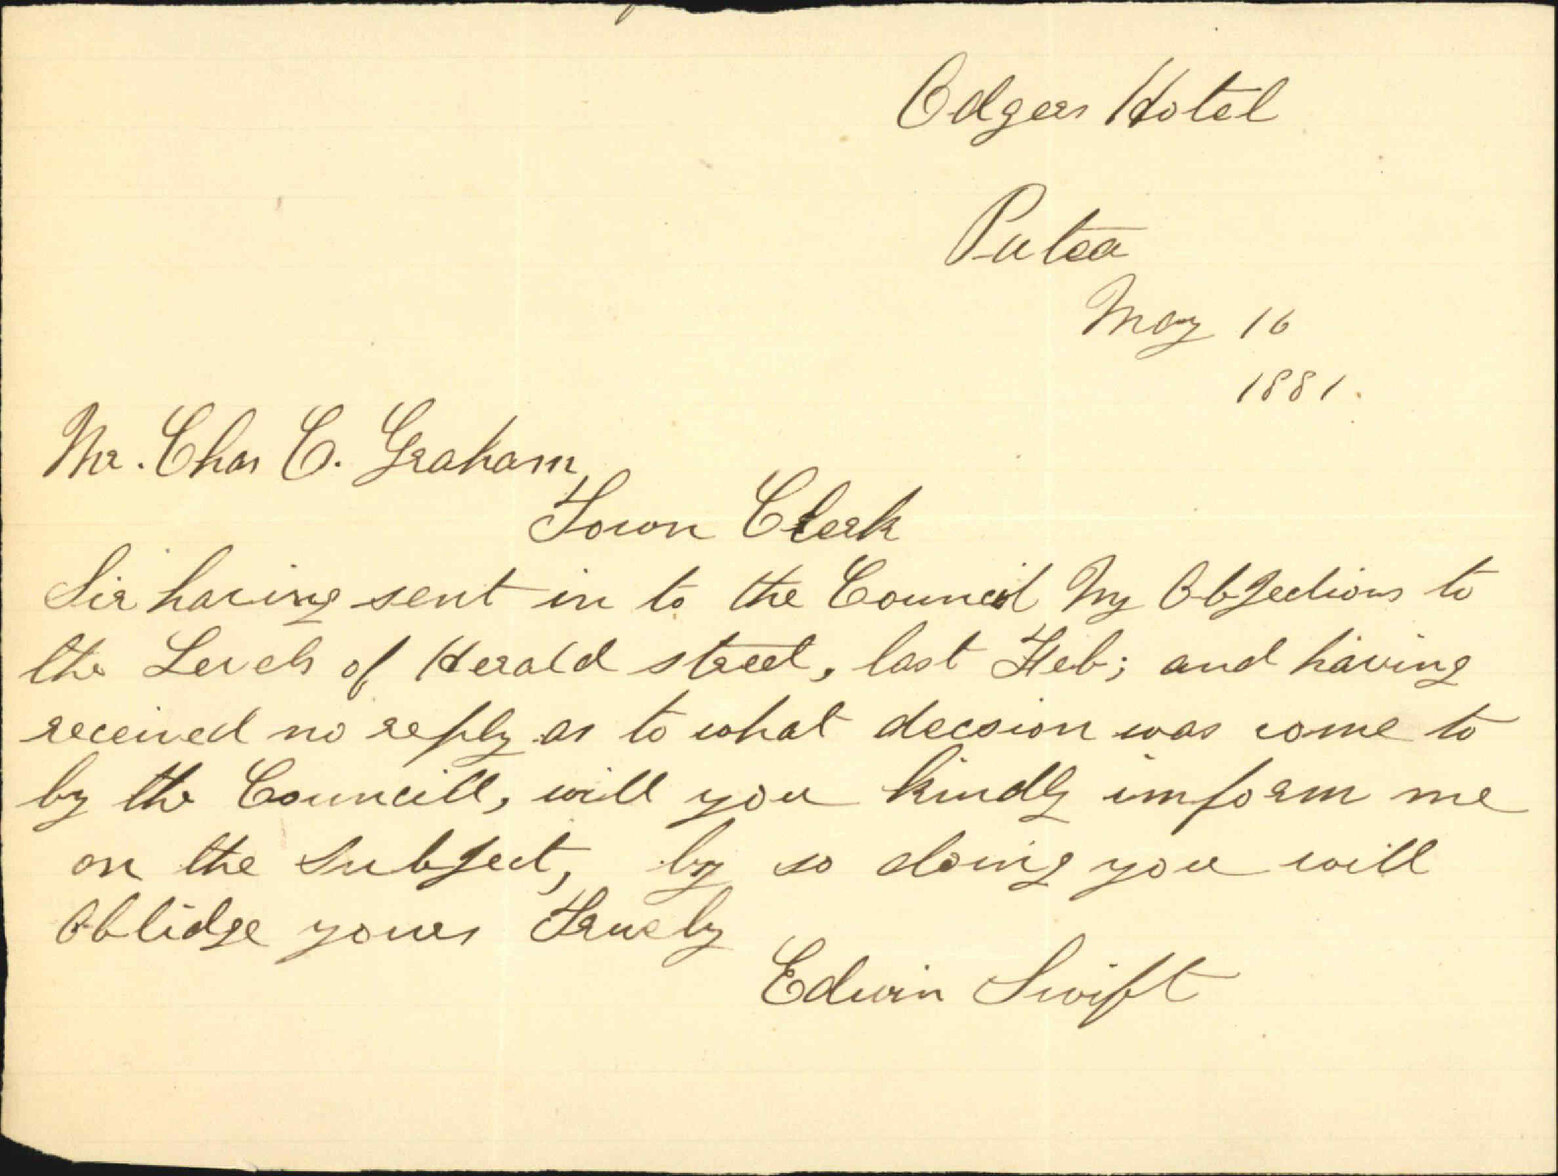 Odgers Hotel
Patea
May 16
1881.
Mr. Chas C. Graham,
Town Clerk
Sir having sent in to the Council My Objections to
the Levels of Herald street, last Feb; and having
received no reply as to what decsion was come to
by the Councill, will you kindly imform me
on the Subject, by so doing you will
Oblidge yours Truely
Edwin Swift